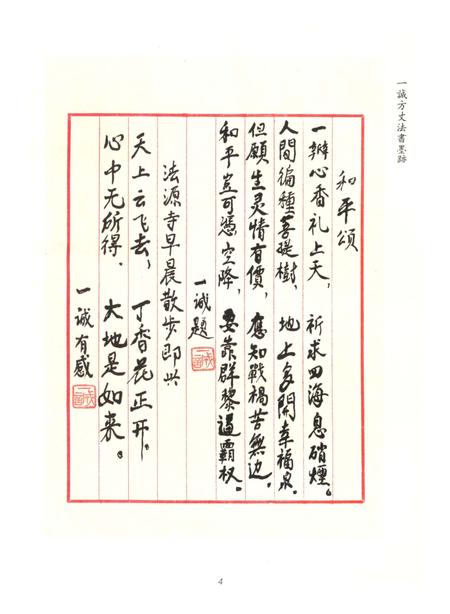 一誠方丈法書墨跡
和平頌
一瓣心香礼上天，祈求四海息硝煙。
人間徧種菩提樹，地上多開幸福泉。
但願生灵情有價，應知戰禍苦無边。
和平豈可憑空降，要靠群黎逼霸权。
一诚题
法源寺早晨散步即兴
天上云飞去，丁香花正开。
心中无所得，大地是如来。
一诚有感
4